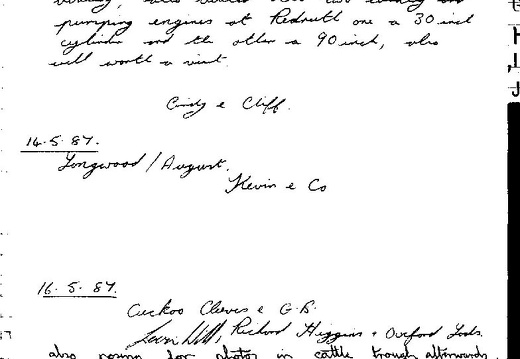 pumping engines at Redruth one a 30 inch
cylinder and the other a 90 inch, also
well worth a visit.
Cindy & Cliff.
16.5.87.
Longwood / August.
Kevin & Co
16.5.87.
Cuckoo Cleeves & G.B.
Richard Higgins + Oxford Lads.
also posing for photos in cattle trough afterwards.